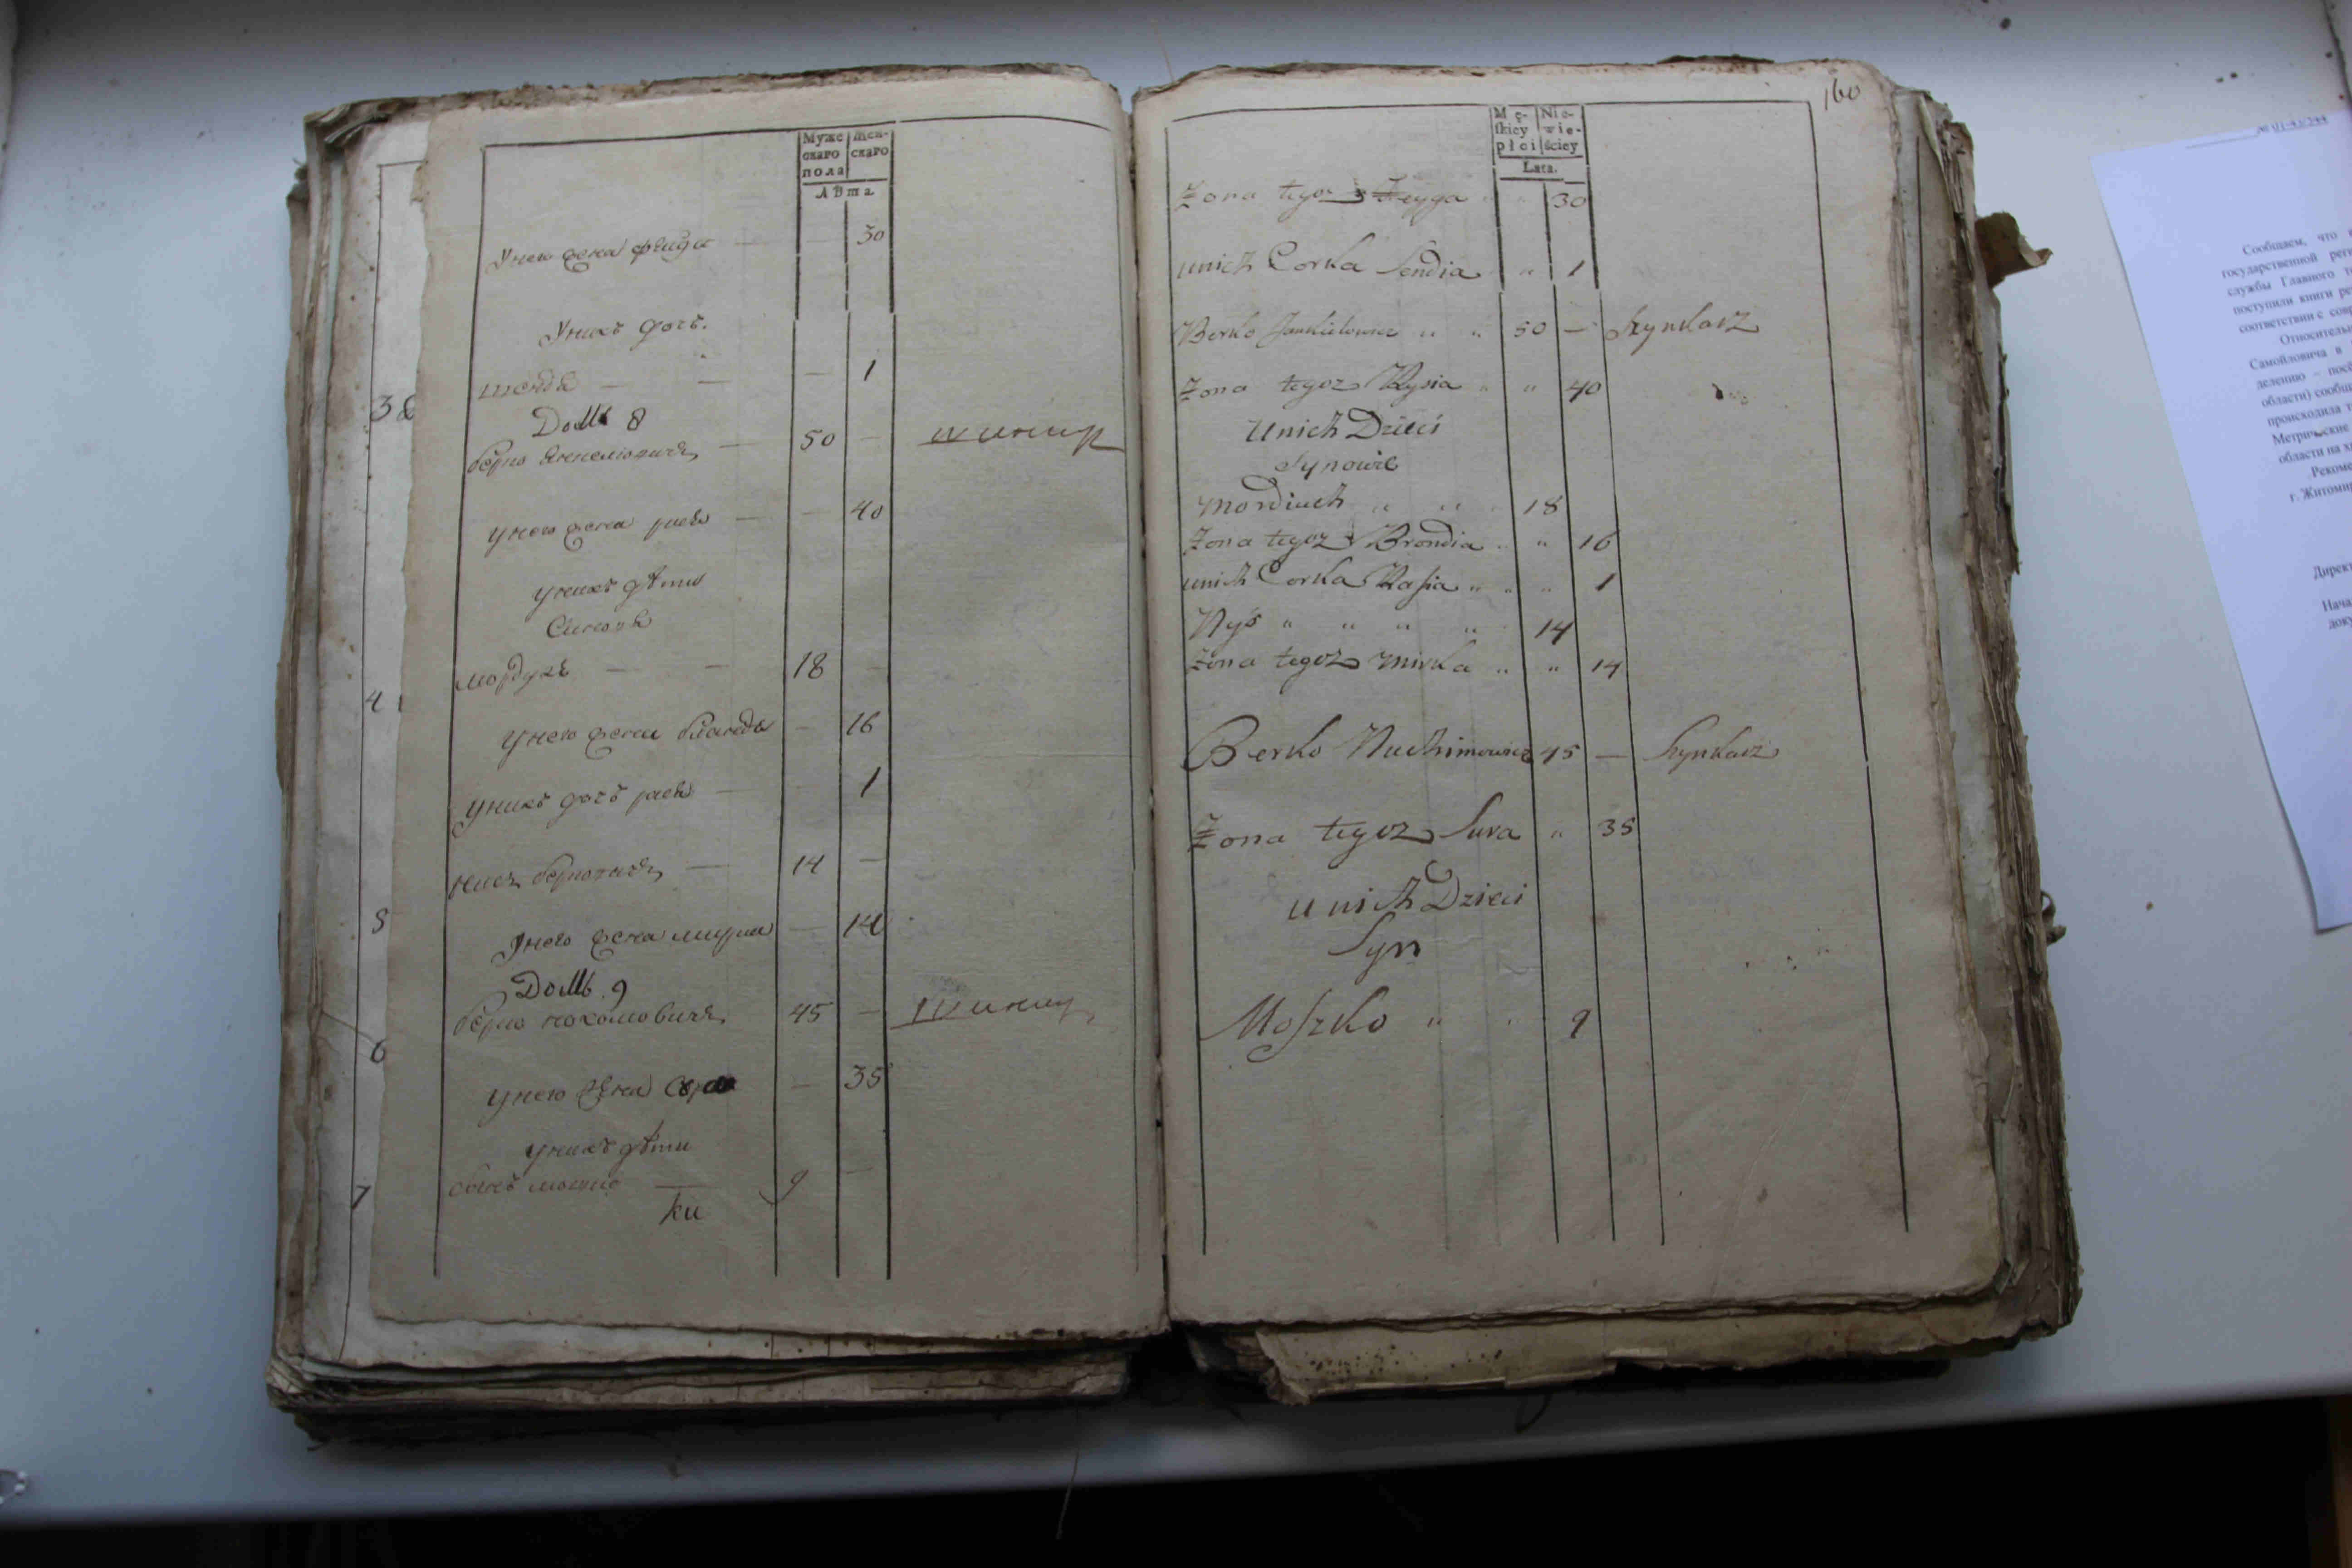 Муже
скаго
пола
Жен-
скаго
Лѣта
У него жена фейга — — 30
У нихъ дочь.
шенда — — — 1
Домъ 8
берко Янкелiовичъ — 50 — шинкар
у него жена рися — — 40
у нихъ дѣти
Синовя
мордухъ — — 18 —
у него жена бранда — 16
у нихъ дочь рася — 1
нисъ берковичъ — 14 —
У него жена мирка — 14
Домъ 9
берко нохомовичъ 45 — шинкар
у него жена Сура — 35
у нихъ дѣти
синъ мошко — 9 —
ки
3
4
5
6
7
160
Mę-
skiey
płci
Nie-
wie-
ściey
Lata.
Zona tegoz Feyga " " 30
unich Corka Sendia " 1
Berko Jankielowicz " " 50 — Szynkarz
Zona tegoz Rysia " " 40
Unich Dzieci
Synowie
Morduch " " " 18
Zona tegoz Brondia " " 16
unich Corka Rasia " " " 1
Nys " " " " 14
Zona tegoz Mirka " " 14
Berko Nuchimowicz 45 — Szynkarz
Zona tegoz Sura " 35
unich Dzieci
Syn
Moszko " " 9
Сообщаем, что
государственной
службы Главного
поступили книги
соответствии с
Самойловича в
области)
происходила
Метрические
области на
г. Житомир